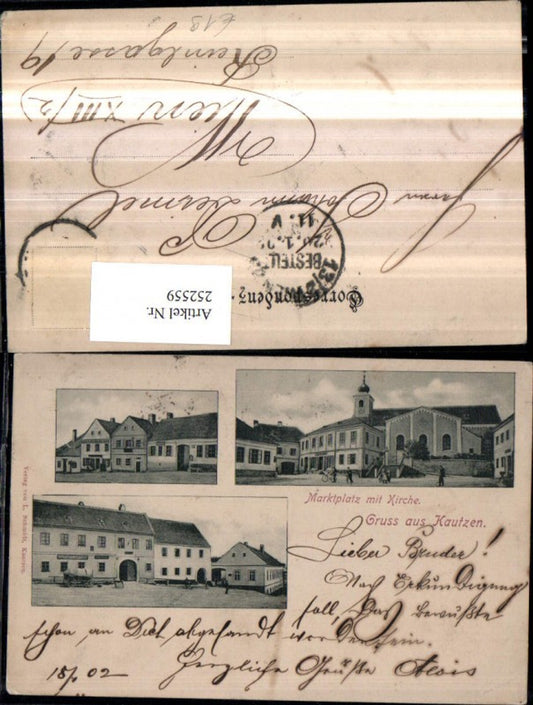 Correspondenz-
Herrn
Johann
Wien XIII/2
19
BESTELLT
Artikel Nr.
252559
Marktplatz mit Kirche.
Gruss aus Kautzen.
Verlag von L. Schmidt, Kautzen.
Lieber Bruder!
Nach Erkundigung
soll, das bewußte
schon an Dich abgesandt worden sein.
18/1 02 Herzliche Grüße Alois